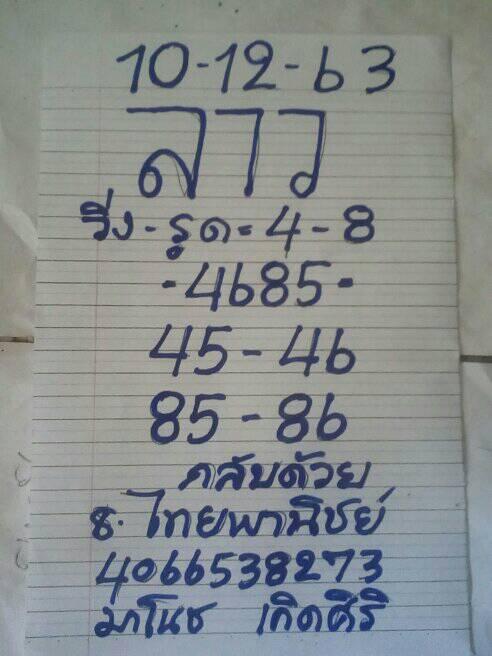 10-12-63
ลาว
วิ่ง-รูด=4-8
-4685-
45-46
85-86
กลับด้วย
ธ. ไทยพานิชย์
4066538273
มาโนช เกิดศิริ